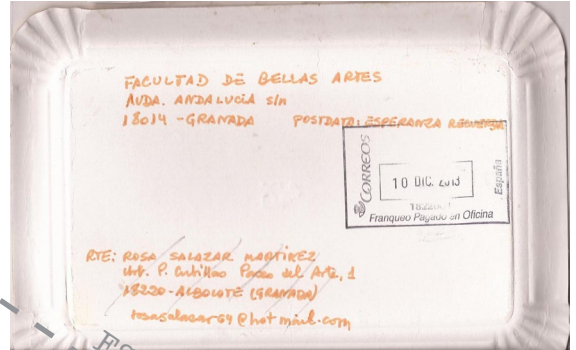 FACULTAD DE BELLAS ARTES
AVDA. ANDALUCÍA s/n
18014 - GRANADA POSTDATA: ESPERANZA
CORREOS
10 DIC. 2013
España
Franqueo Pagado en Oficina
RTE: ROSA SALAZAR MARTÍNEZ
Urb. P. Cubillas Paseo del Arte, 1
18220 - ALBOLOTE (GRANADA)
rosasalazar64@hotmail.com